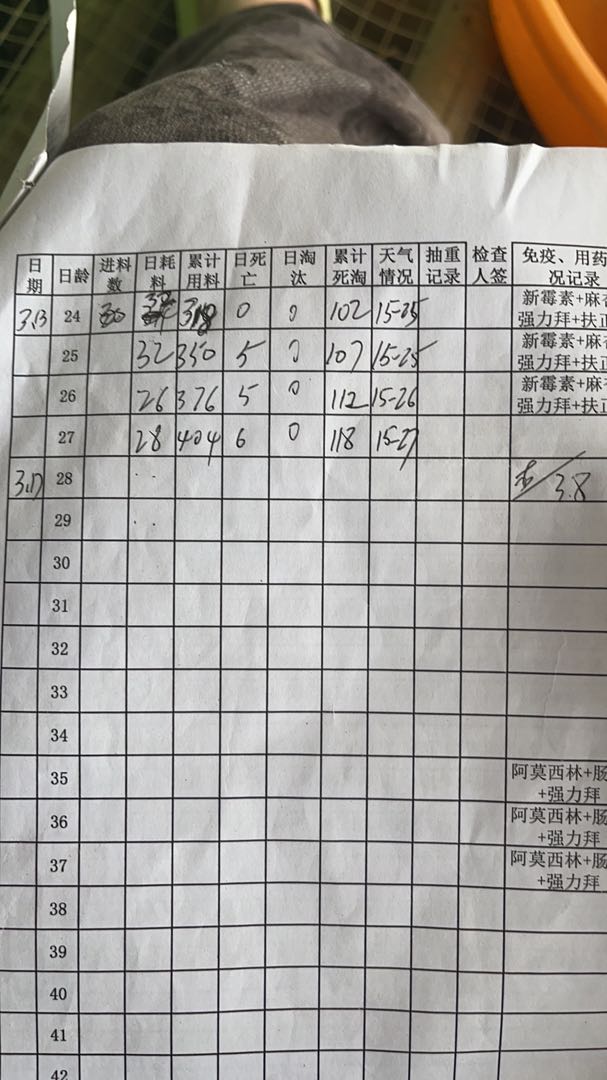 日期 日龄 进料数 日耗料 累计用料 日死亡 日淘汰 累计死淘 天气情况 抽重记录 检查人签 免疫、用药 况记录
3.13 24 318 0 0 102 15-25 新霉素+麻 强力拜+扶正
25 32 350 5 0 107 15-25 新霉素+麻 强力拜+扶正
26 26 376 5 0 112 15-26 新霉素+麻 强力拜+扶正
27 28 404 6 0 118 15-27
3.17 28 3.8
29
30
31
32
33
34
35 阿莫西林+肠 +强力拜
36 阿莫西林+肠 +强力拜
37 阿莫西林+肠 +强力拜
38
39
40
41
42